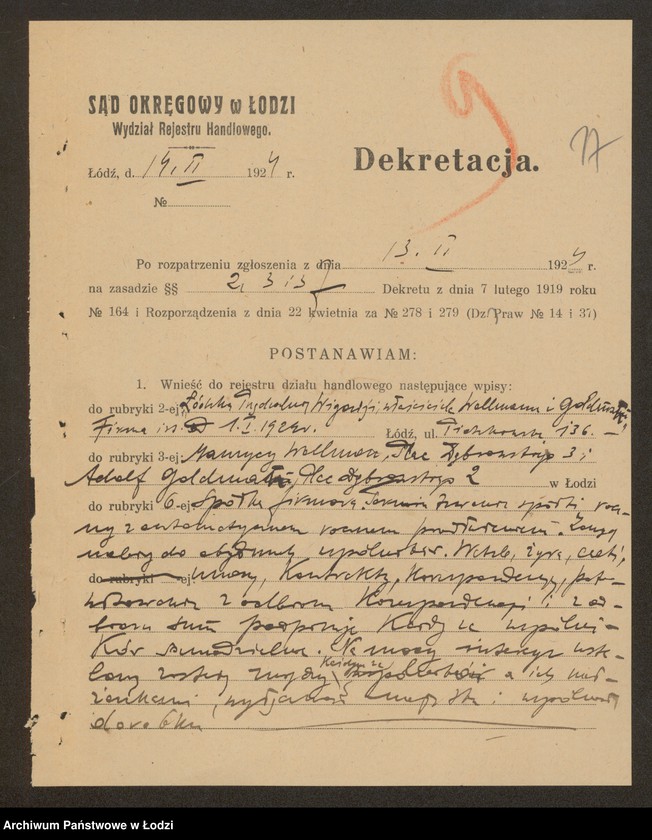 SĄD OKRĘGOWY w ŁODZI
Wydział Rejestru Handlowego.
Łódź, d. 14. II 1924 r.
Dekretacja.
№
Po rozpatrzeniu zgłoszenia z dnia 13. II 1924 r.
na zasadzie §§ 2, 3 i 5 Dekretu z dnia 7 lutego 1919 roku
№ 164 i Rozporządzenia z dnia 22 kwietnia za № 278 i 279 (Dz. Praw № 14 i 37)
POSTANAWIAM:
1. Wnieść do rejestru działu handlowego następujące wpisy:
do rubryki 2-ej właściciele Wollmann i
Firma 1.I.1924r. Łódź, ul. Piotrkowska 136. —
do rubryki 3-ej Maurycy Wollmann, Plac Dąbrowskiego 3 i
Adolf Plac Dąbrowskiego 2 w Łodzi
do rubryki 6-ej Spółka firmowa. Termin trwania spółki rocz-
ny z automatycznem rocznem przedłużeniem. Zarząd
należy do obydwóch wspólników. Weksle, żyra, czeki,
do rubryki ej umowy, kontrakty, korespondencję, pok-
witowania z odbioru korespondencji i z od-
bioru sum podpisuje każdy ze wspólni-
ków samodzielnie. Na mocy intercyz usta-
lony został między każdym ze wspólników a ich mał-
żonkami, wyłączność majątku i wspólność
dorobku
Archiwum Państwowe w Łodzi